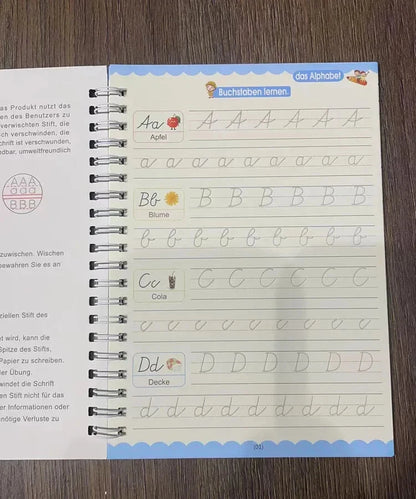 as Produkt nutzt das
en des Benutzers zu
verwischten Stift, die
ch verschwinden, die
chrift ist verschwunden,
edbar, umweltfreundlich
AAA
aaa
BBB
zuwischen. Wischen
bewahren Sie es an
ziellen Stift des
t wird, kann die
Spitze des Stifts,
Papier zu schreiben.
er Übung.
windet die Schrift
en Stift nicht für das
er Informationen oder
nötige Verluste zu
das Alphabet
Buchstaben lernen.
Aa A A A A A A
Apfel
a a a a a a a a a
Bb B B B B B B
Blume
b b b b b b b b b
Cc C C C C C C
Cola
c c c c c c c c c
Dd D D D D D D
Decke
d d d d d d d d d
(01)